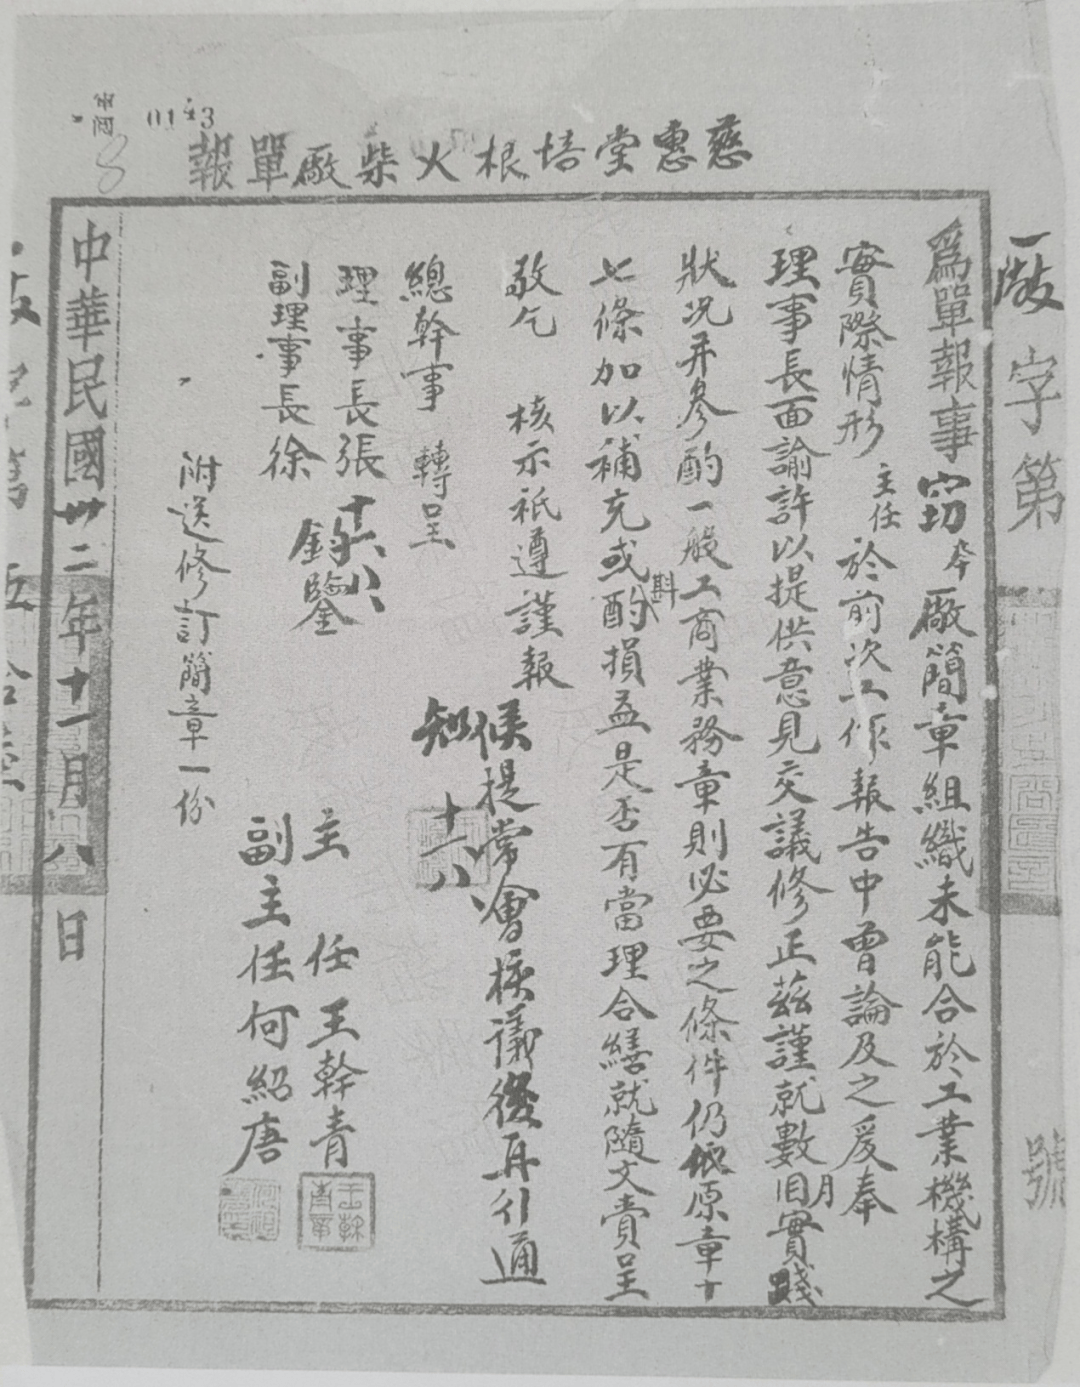 慈惠堂培根火柴廠單報
0143
廠字第 號
為單報事竊本廠簡章組織未能合於工業機構之
實際情形主任於前次工作報告中曾論及之爰奉
理事長面諭許以提供意見交議修正茲謹就數月實踐
狀況并參酌一般工商業務章則必要之條件仍依原章十
七條加以補充或酌斟損益是否有當理合繕就隨文賫呈
敬乞 核示祇遵謹報
總幹事 轉呈
理事長張
副理事長徐 鈞鑒
候提常會核議後再行通
知 十一八
主任王幹青
副主任何紹唐
附送修訂簡章一份
中華民國卅二年十一月八日